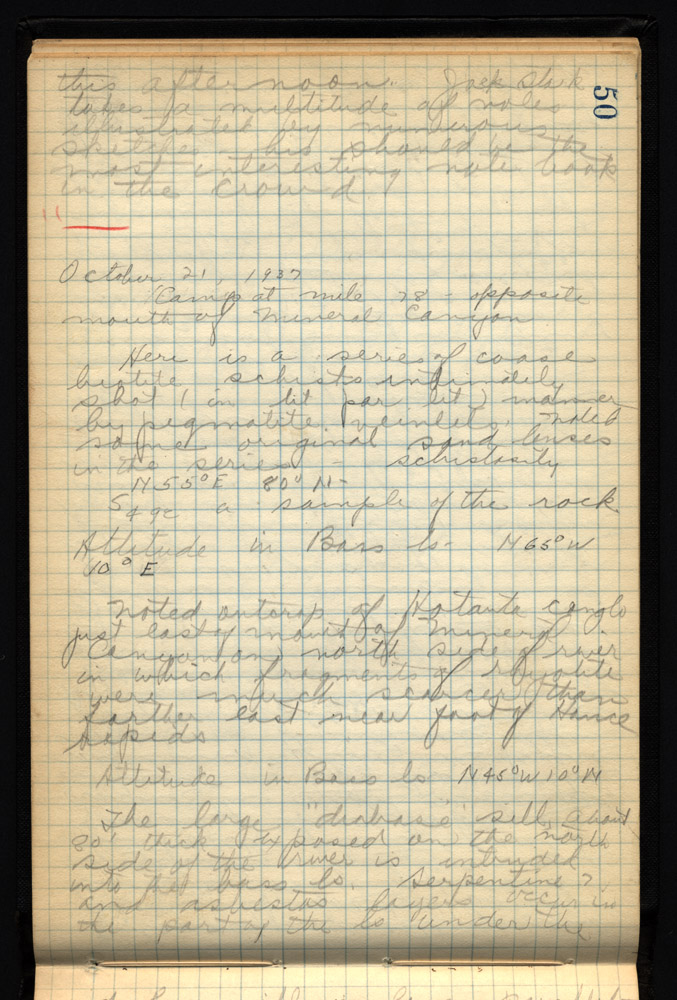 50
this afternoon. Jack Stark
takes a multitude of notes
illustrated by numerous
sketches - his should be the
most interesting note book
in the crowd.
October 21, 1937
Camp at mile 78 - opposite
mouth of Mineral Canyon
Here is a series of coase
biotite schists intimately
shot (in lit par lit) manner
by pegmatite veinlets. Noted
some original sand lenses
in the series - schistosity
N55°E 80° N-
S49c a sample of the rock
Attitude in Bass ls- N65°W
10° E
Noted outcrop of Hotauta conglo
just east of mouth of Mineral
Canyon on north side of river
in which fragments of
were much scarcer than
farther east near foot of Hance
Rapids
Attitude in Bass ls N45°W 10°N
The large "diabase" sill, about
80' thick exposed on the north
side of the river is intruded
into the bass ls. Serpentine ?
and asbestos layers occur in
the part of the ls under the